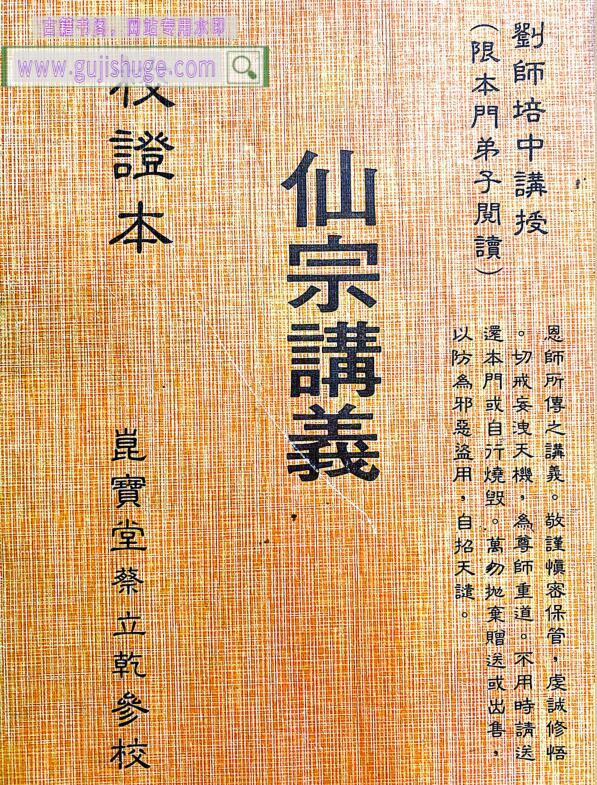 古籍书阁，网站专用水印
www.gujishuge.com
劉師培中講授
（限本門弟子閱讀）
恩師所傳之講義。敬謹慎密保管，虔誠修悟
。切戒妄洩天機，為尊師重道。不用時請送
還本門或自行燒毀。萬勿拋棄贈送或出售，
以防為邪惡盜用，自招天譴。
仙宗講義
校證本
崑寶堂蔡立乾參校